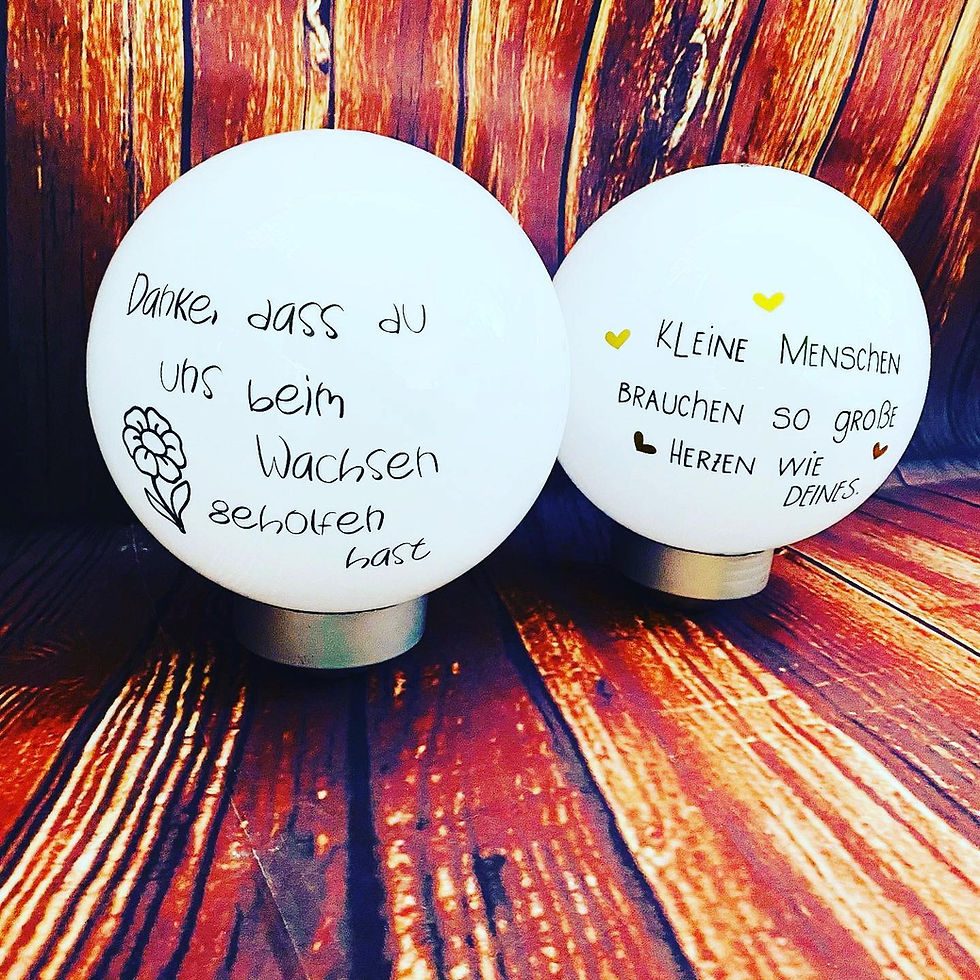 Danke, dass du
uns beim
Wachsen
geholfen
hast
KLEINE MENSCHEN
BRAUCHEN SO GROßE
HERZEN WIE
DEINES.